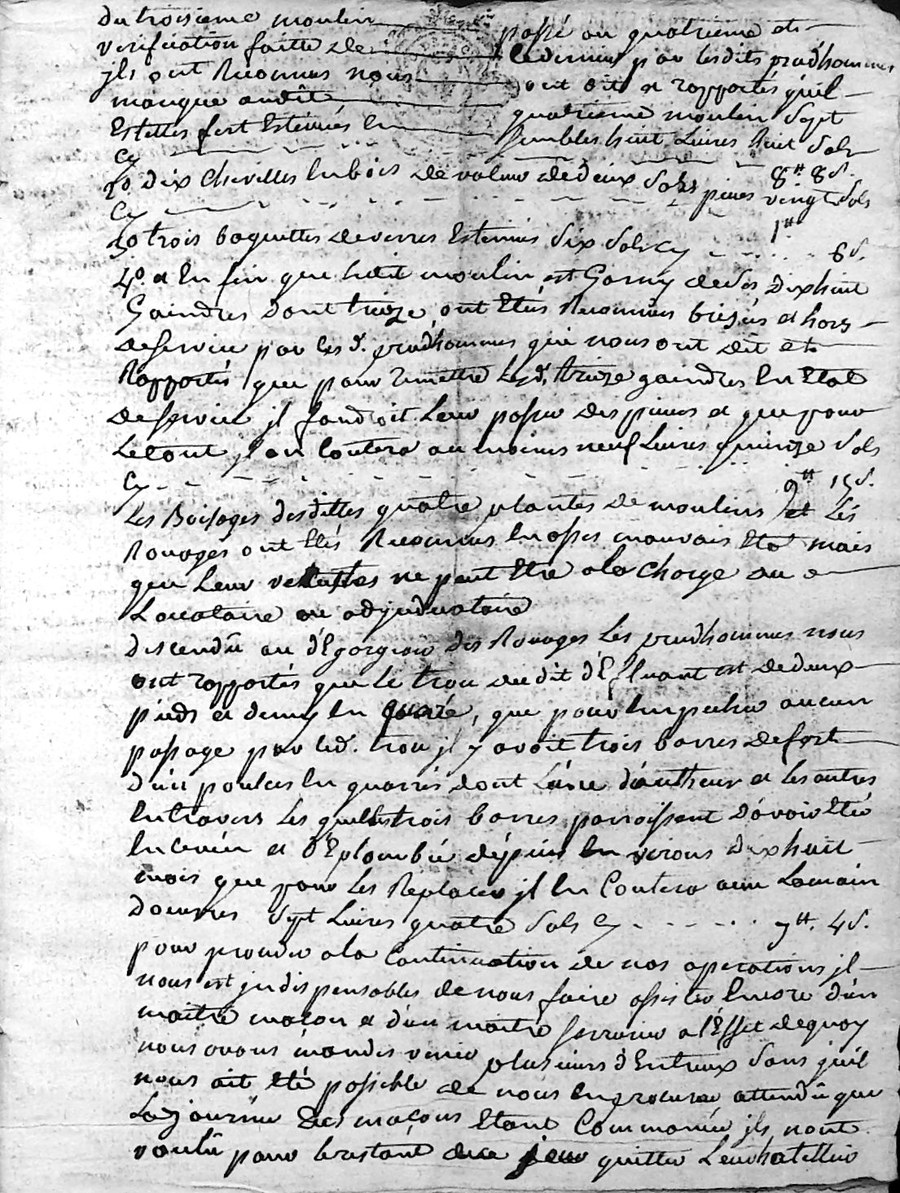 du troisieme moulin passé au quatrieme et
verification faitte de ce dernier par lesdits prudhommes
jls ont Reconnus nous ont dit et rapportés qu'il
manque audit quatrieme moulin Sept
Estelles fort Estimées Ensembles huit Livres huit Sols
Cy 8tt 8s.
2o. dix Chevilles En bois de valeur de deux Sols pieces vingt Sols
Cy 1tt
3o. trois baguettes de verres Estimées Six Sols Cy 6s.
4o. et En fin que ledit moulin est Garny de Ses dixhuit
Gaindres dont treize ont Etés Reconnus brisées et hors
de service par les d. prudhommes que nous ont dit et
Rapportés que pour remettre Lesd. treize gaindres En Etat
de service jl faudroit Leur poser des pieces et que pour
Le tout jl en Coutera au moins neuf Livres quinze Sols
Cy 9tt 15s.
Les Boisages desdittes quatre plantes de moulins et Les
Rouages ont Etés Reconnus En asses mauvais Etat mais
que Leur vetustes ne peut Etre a la Charge du
Locataire ou adjudicataire
descendû au dEgorgeoir des Rouages Les prudhommes nous
ont rapportés que Le trou dudit dEfluant est de deux
pieds et demy En quarré, que pour Empecher aucun
passage par led. trou jl y avoit trois barres de fert
d'un poulces En quarré dont L'une d'autheur et Les autres
En travers Les quelles trois barres parroissent d'avoir Eté
En Levées et dEplombée dépuis En virons dixhuit
mois que pour Les Replacer jl En Coutera avec La main
d'oeuvres Sept Livres quatre Sols Cy 7tt. 4s.
pour proceder a la Continuation de nos operations jl
nous est jndispensables de nous faire assister Encore d'un
maitre maçon et d'un maitre Serrurier a l'Effet de quoy
nous avons mandés venir plusieurs d'Entreux Sans qu'il
nous ait Eté possible de nous En procurer attendû que
La journée des maçons Etant Commancée jls n'ont
voulû pour le restant de ce jour quitter Leur hatellier